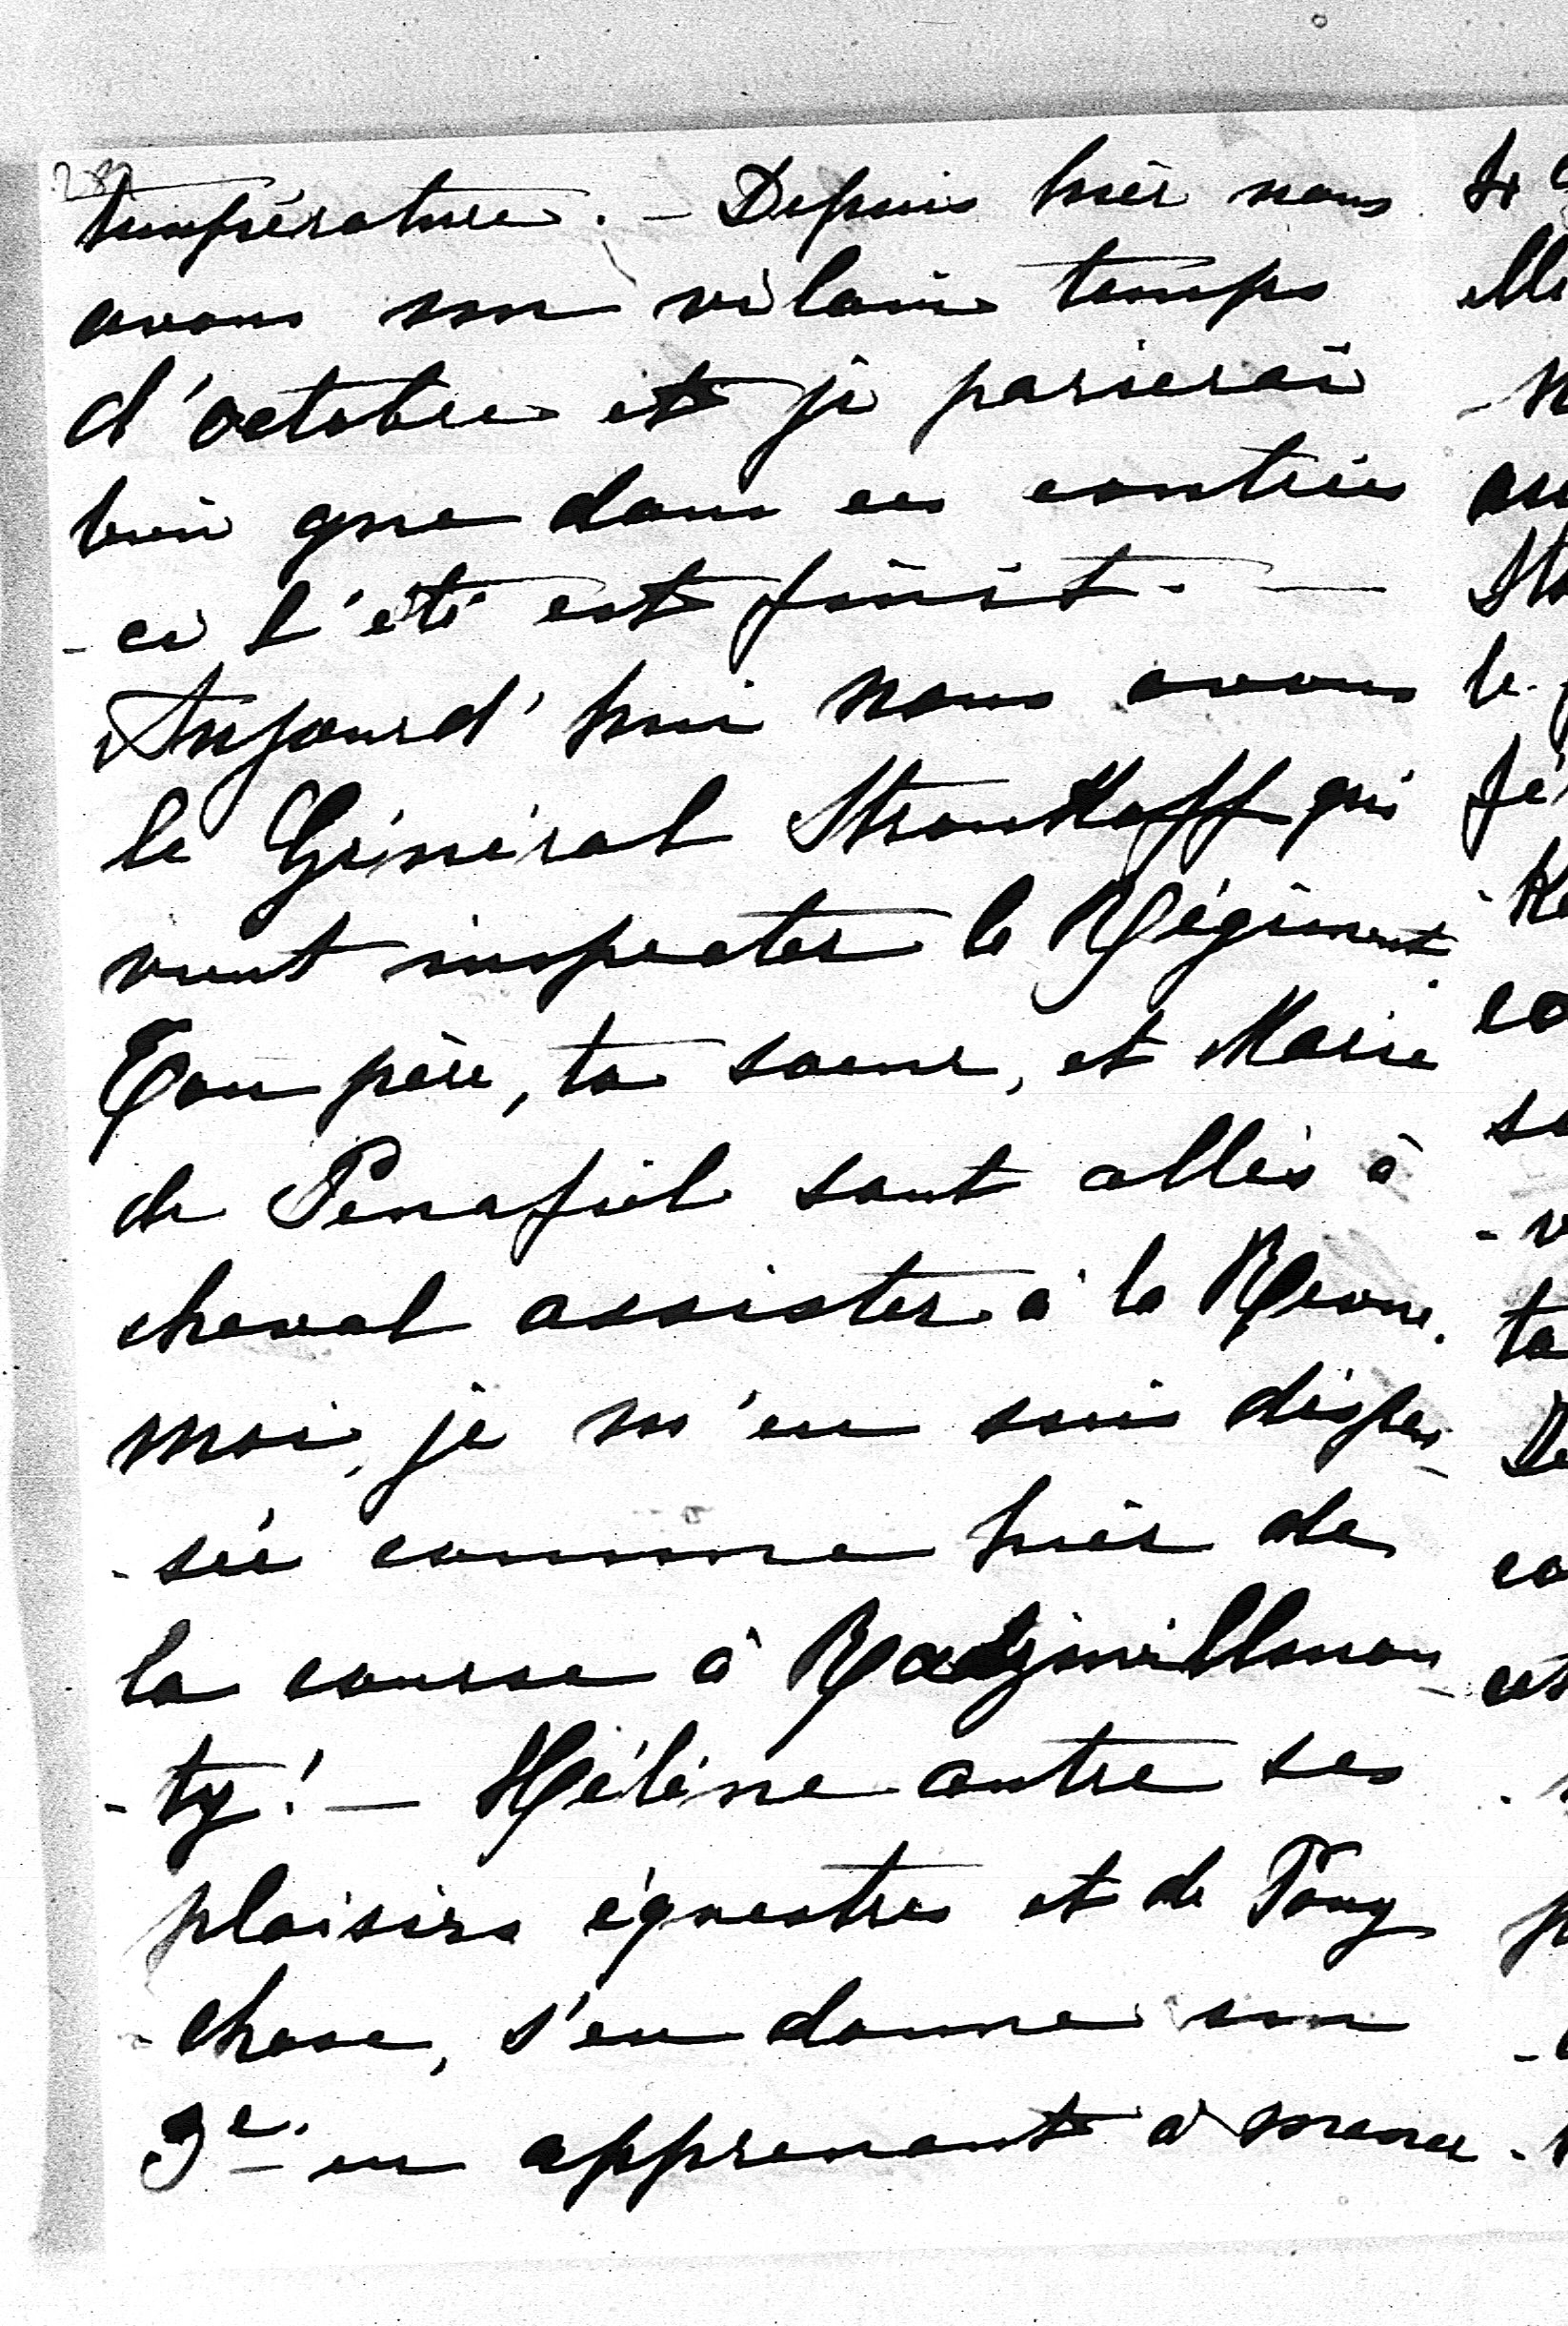 282
température. – Depuis hier nous
avons un vilain temps
d'octobre et je parierai
bien que dans ces contrées
- ci l'été est finit. —
Aujourd'hui nous avons
le Général Stroukoff qui
vient inspecter le Régiment.
Ton père, ta soeur, et Marie
de Penafiel sont allés à
cheval assister à la Revue.
moi, je m'en suis dispen-
- sée comme hier de
la course à Radziwillmon-
- ty! — Hélène outre ses
plaisirs équestres et de
chose, s'en donne un
3e. en apprenant à mener